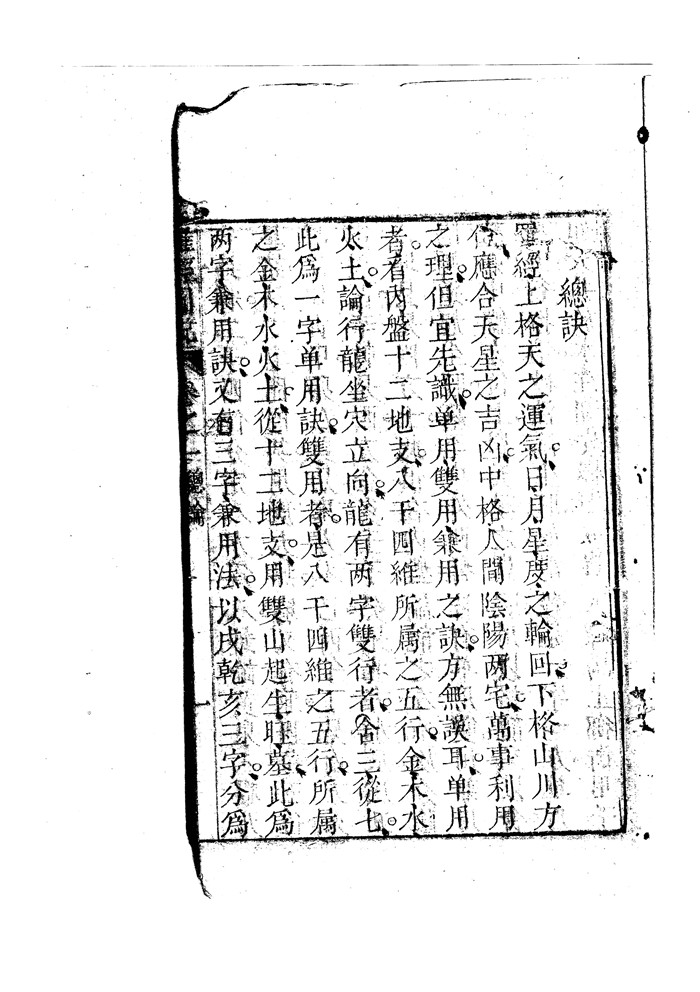 總訣
羅經上格天之運氣日月星度之輪回下格山川方
位應合天星之吉凶中格人間陰陽两宅萬事利用
之理但宜先識单用雙用兼用之訣方無誤耳单用
者看内盤十二地支八干四維所属之五行金木水
火土論行龍坐穴立向龍有两字雙行者舍三從七
此爲一字单用訣雙用者是八干四維之五行所属
之金木水火土從十二地支用雙山起生旺墓此爲
两字兼用訣又有三字兼用法以戌乾亥三字分爲
羅經圖説 卷之一 總論